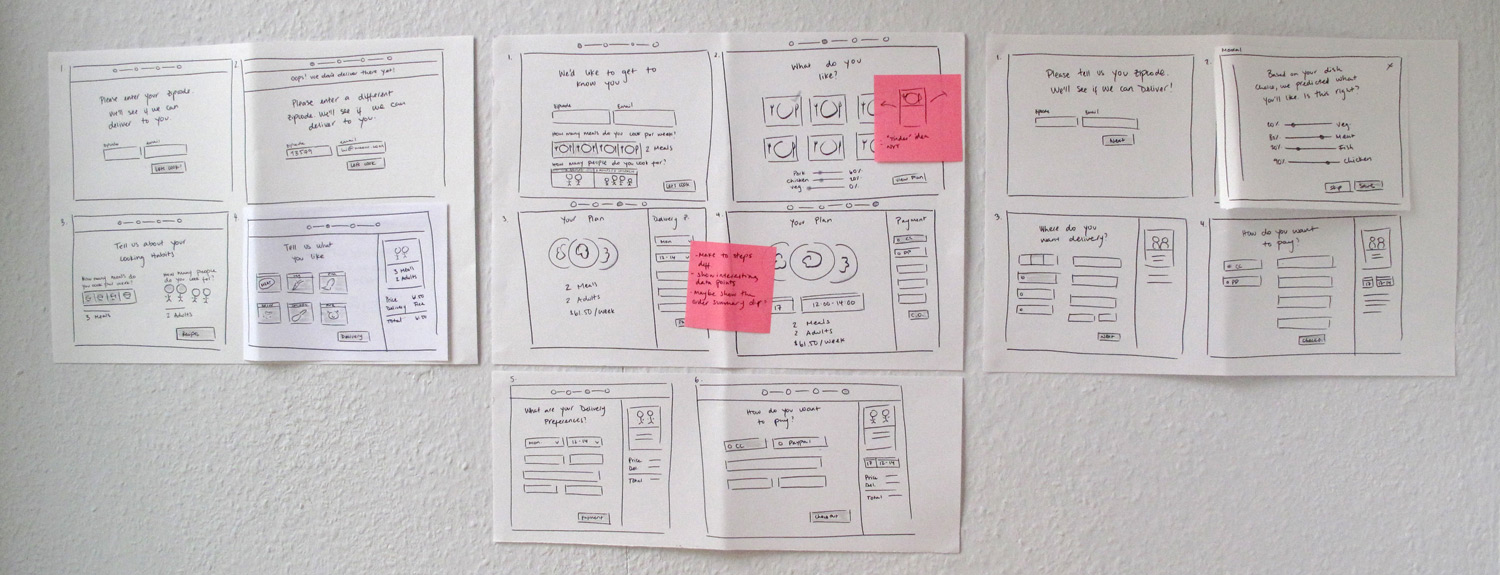 1.
Please enter your Zipcode.
We'll see if we can
deliver to you.
Zipcode
email
Let's cook!
2.
Oops! we don't deliver there yet!
Please enter a different
Zipcode. We'll see if we can
deliver to you.
Zipcode
email
Let's cook
3.
Tell us about your
Cooking Habits
How many meals do
you cook for week?
How many people
do you cook for?
3 Meals
2 Adults
Recipes
4.
Tell us what
you like
3 Meals
2 Adults
Price
Delivery
Total
Delivery
1.
We'd like to get to
know you
Zipcode
Email
How many meals do you cook per week?
2 Meals
How many people do you cook for?
Let's cook
2.
What do you
like?
"Tinder" idea
Pork 60%
Chicken 20%
Veg 0%
View Plan
3.
Your Plan
2 Meals
2 Adults
$61.50/week
Delivery P.
Mon
12-14
- Make to steps
diff
- Show interesting
data points
- Maybe show the
order summary
4.
Your Plan
17
12:00-14:00
2 Meals
2 Adults
$61.50/week
Payment
CC
PP
C.O.
5.
What are your Delivery
Preferences?
Mon
12-14
Price
Del.
Total
Payment
6.
How do you want
to pay?
CC
Paypal
17
12-14
Price
Del.
Total
Checkout
1.
Please tell us you Zipcode.
We'll see if we can Deliver!
Zipcode
Email
Next
Modal
2.
X
Based on your dish
choice, we predicted what
you'll like. Is this right?
Veg
Meat
Fish
90%
Chicken
Skip
Save
3.
Where do you
want delivery?
Next
4.
How do you want
to pay?
CC
PP
17
12-14
Checkout